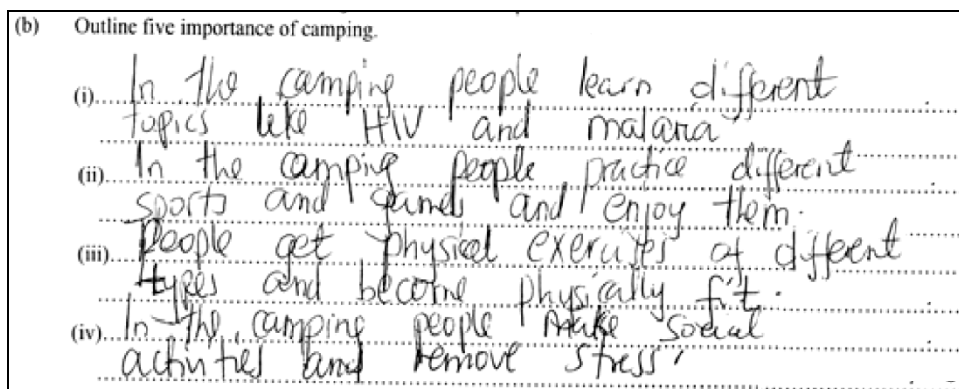 (b) Outline five importance of camping.
(i) In the camping people learn different
topics like HIV and malaria
(ii) In the camping people practice different
sports and games and enjoy them.
(iii) People get physical exercises of different
types and become physically fit.
(iv) In the camping people make social
activities and remove stress.